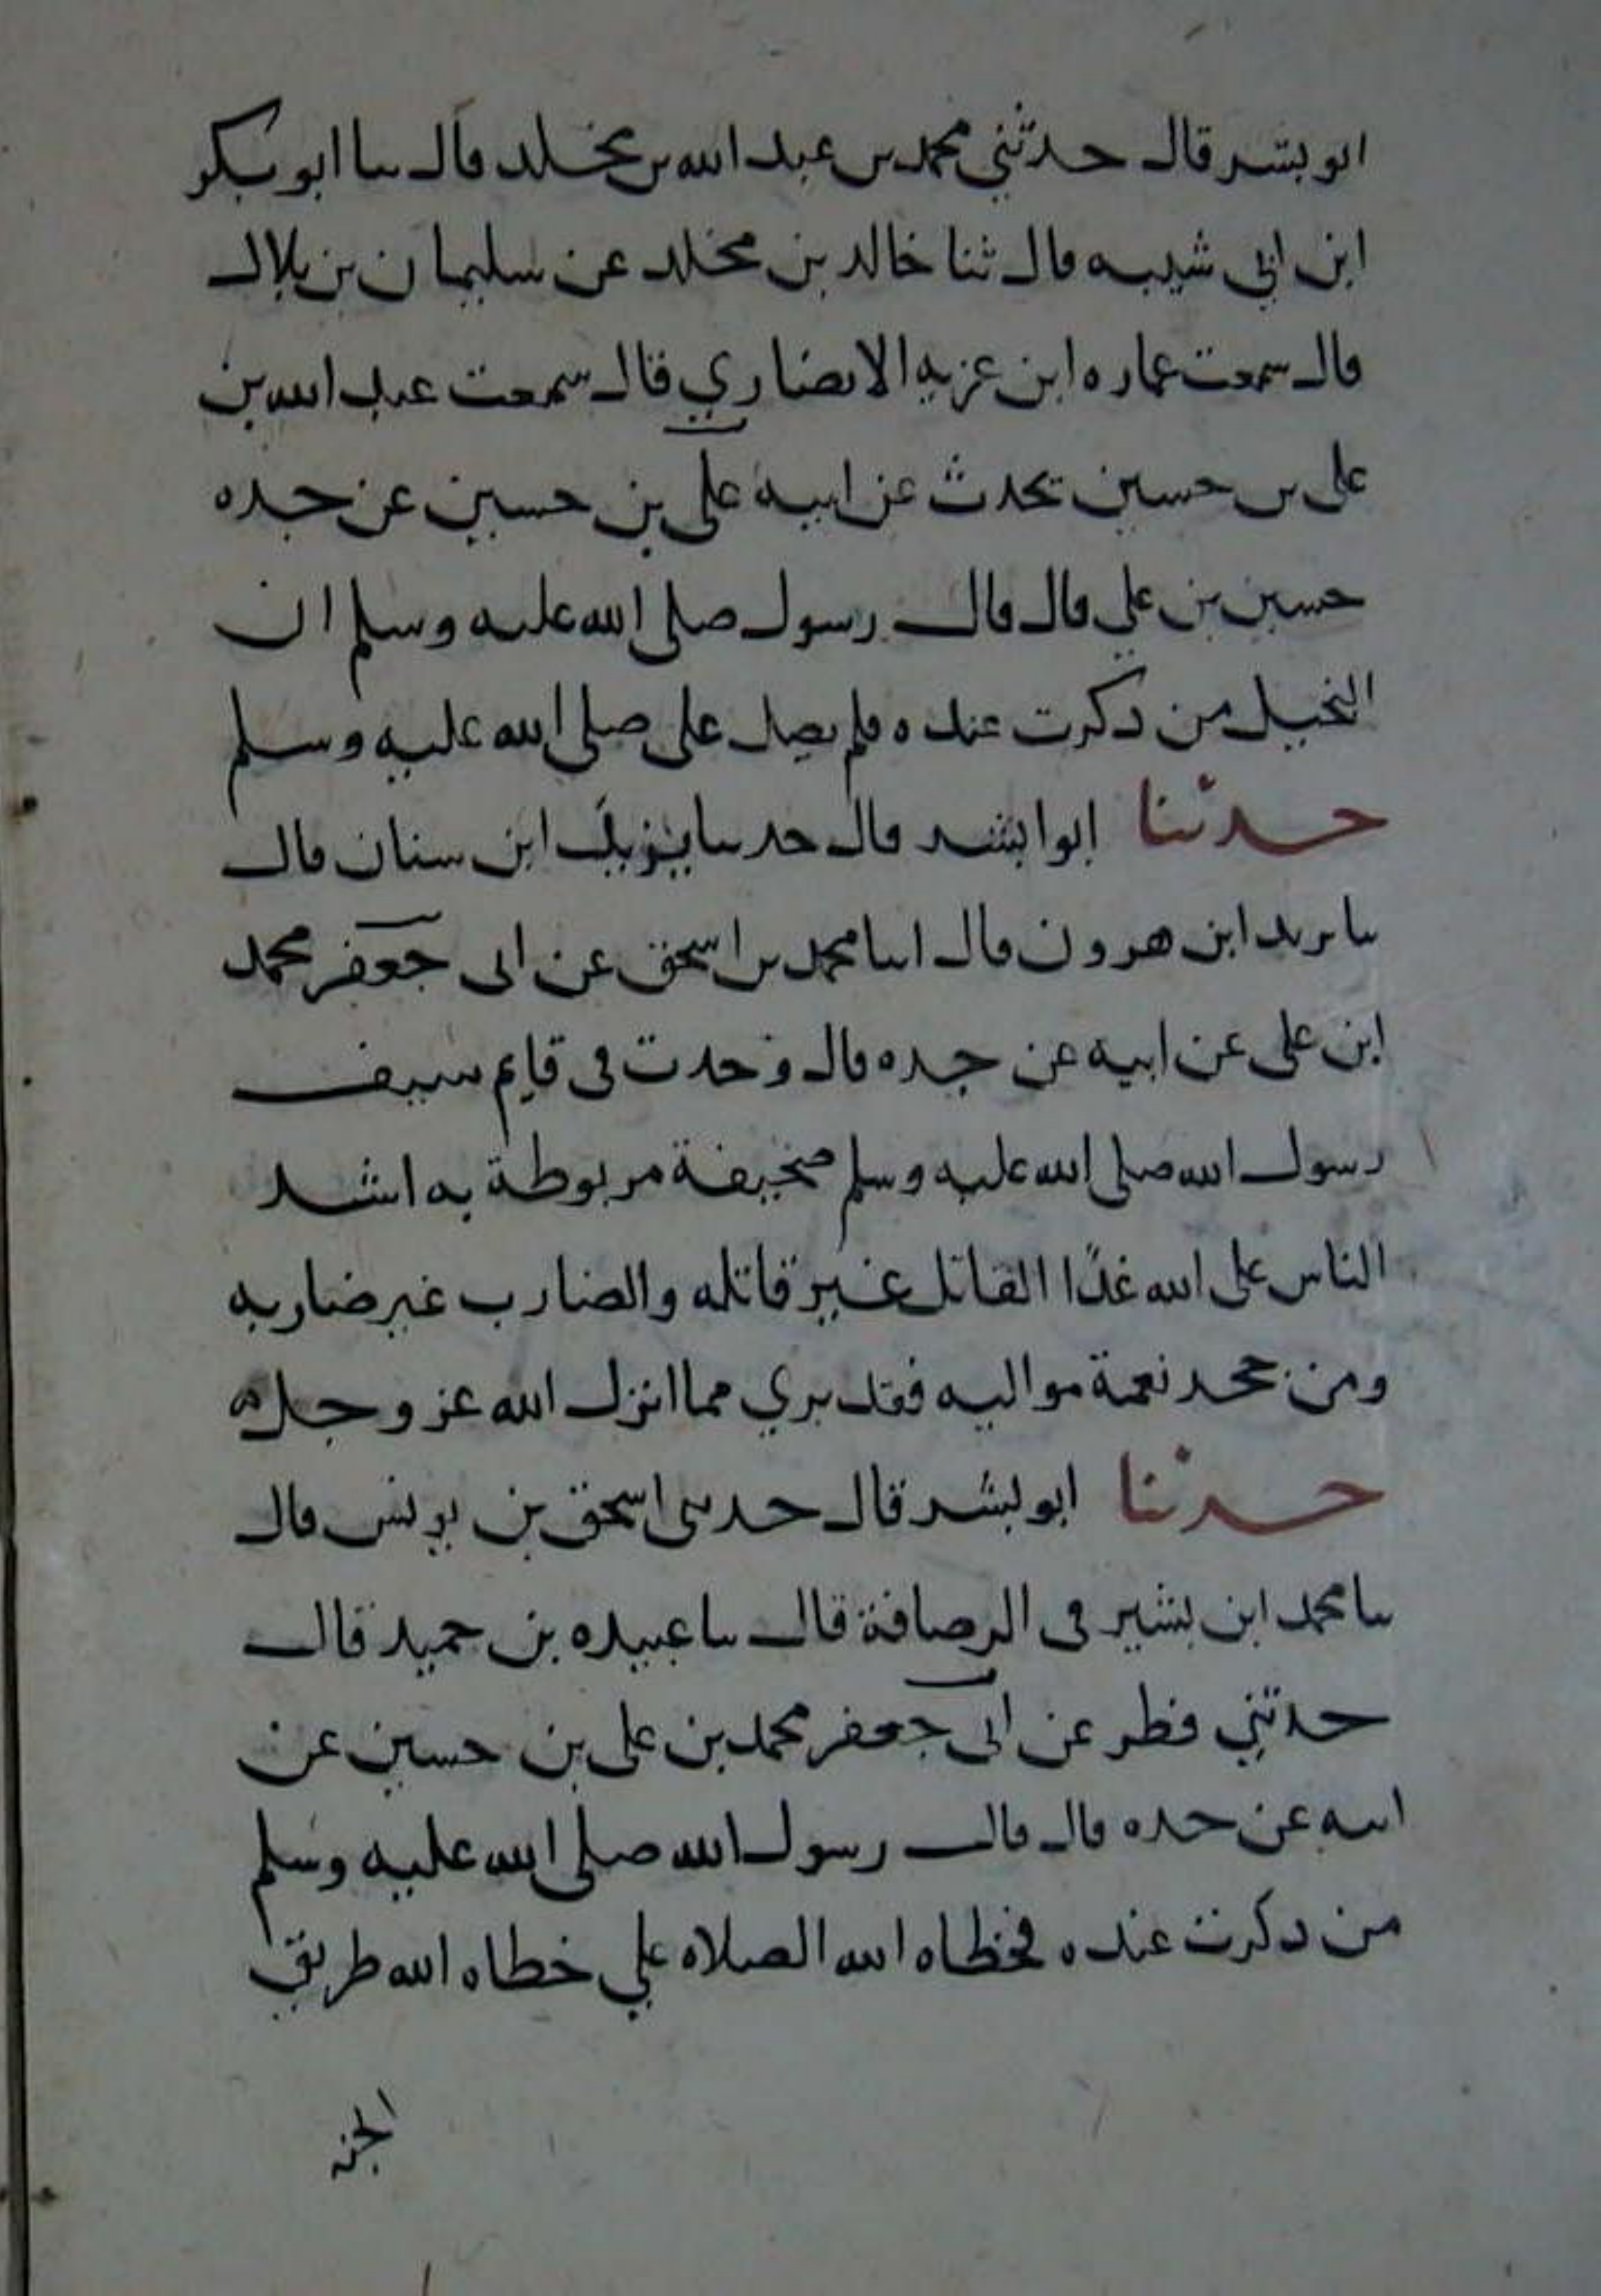 ابو بشر قال حدثني محمد بن عبد الله بن مخلد قال سا ابو بكر
ابن ابي شيبه قال ثنا خالد بن مخلد عن سليمان بن بلال
قال سمعت عماره ابن عزيه الانصاري قال سمعت عبد الله بن
على بن حسين يحدث عن ابيه على بن حسين عن جده
حسين بن علي قال قال رسول صلى الله عليه وسلم ان
البخيل من ذكرت عنده فلم يصل على صلى الله عليه وسلم
حدثنا ابوا بشر قال حدسا يزيد ابن سنان قال
سا يزيد ابن هرون قال اسا محمد بن اسحق عن ابى جعفر محمد
ابن على عن ابيه عن جده قال وجدت في قايم سيف
رسول الله صلى الله عليه وسلم صحيفة مربوطة به اشد
الناس على الله غدًا القاتل غير قاتله والضارب غير ضاربه
ومن جحد نعمة مواليه فقد بري مما انزل الله عز وجل ه
حدثنا ابو بشر قال حدثنى اسحق بن يونس قال
سا محمد ابن بشير في الرصافة قال سا عبيده بن حميد قال
حدثني فطر عن ابى جعفر محمد بن على بن حسين عن
ابيه عن جده قال قال رسول الله صلى الله عليه وسلم
من ذكرت عنده فخطاه الله الصلاه علي خطاه الله طريق
الجنه